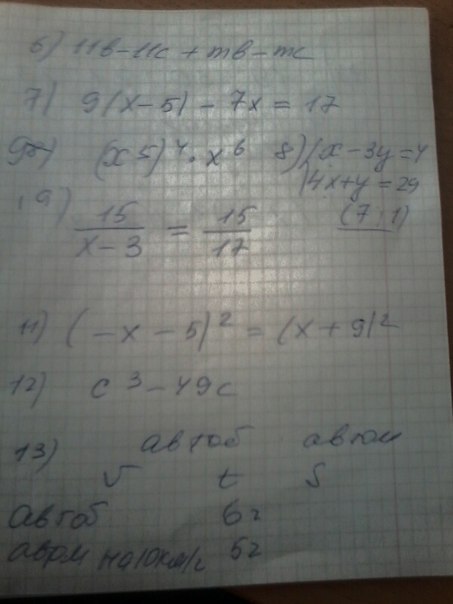 6) 11в-11с + mв-mc
7) 9(x-5) - 7x = 17
9б) (x5)4 · x6 8) x-3y=4
4x+y=29
9) 15/x-3 = 15/17 (7;1)
11) (-x-5)² = (x+9)²
12) c³-49c
13) автоб автом
v t S
автоб 6ч
автом на 10км/ч 5ч